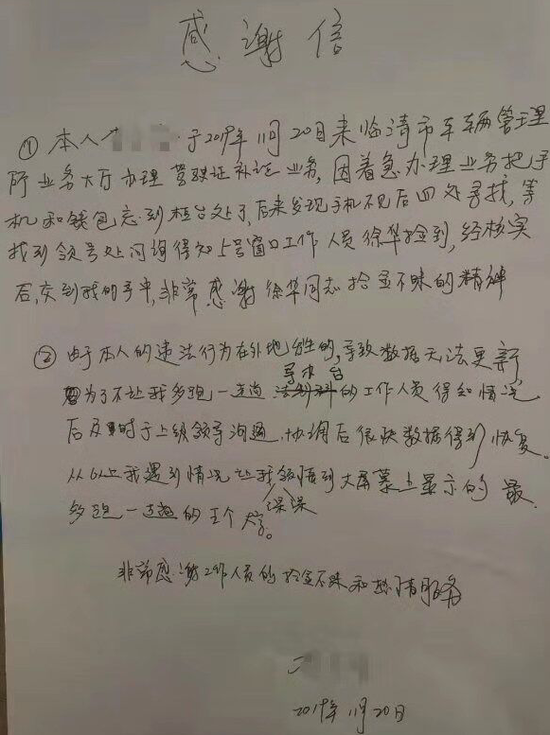 感谢信
① 本人 于2019年11月20日来临清市车辆管理
所业务大厅办理驾驶证补证业务,因着急办理业务把手
机和钱包忘到柜台处了,后来发现手机不见后四处寻找,等
找到领号处问询得知上号窗口工作人员徐华捡到,经核实
后,交到我的手中,非常感谢徐华同志拾金不昧的精神
② 由于本人的违法行为在外地发生的,导致数据无法更新,
导办台
为了不让我多跑一趟 的工作人员得知情况
后及时于上级领导沟通,协调后很快数据得到恢复。
从以上我遇到情况让我领悟到大屏幕上显示的最
多跑一趟的五个大字。深深
非常感谢工作人员的拾金不昧和热情服务
2019年11月20日